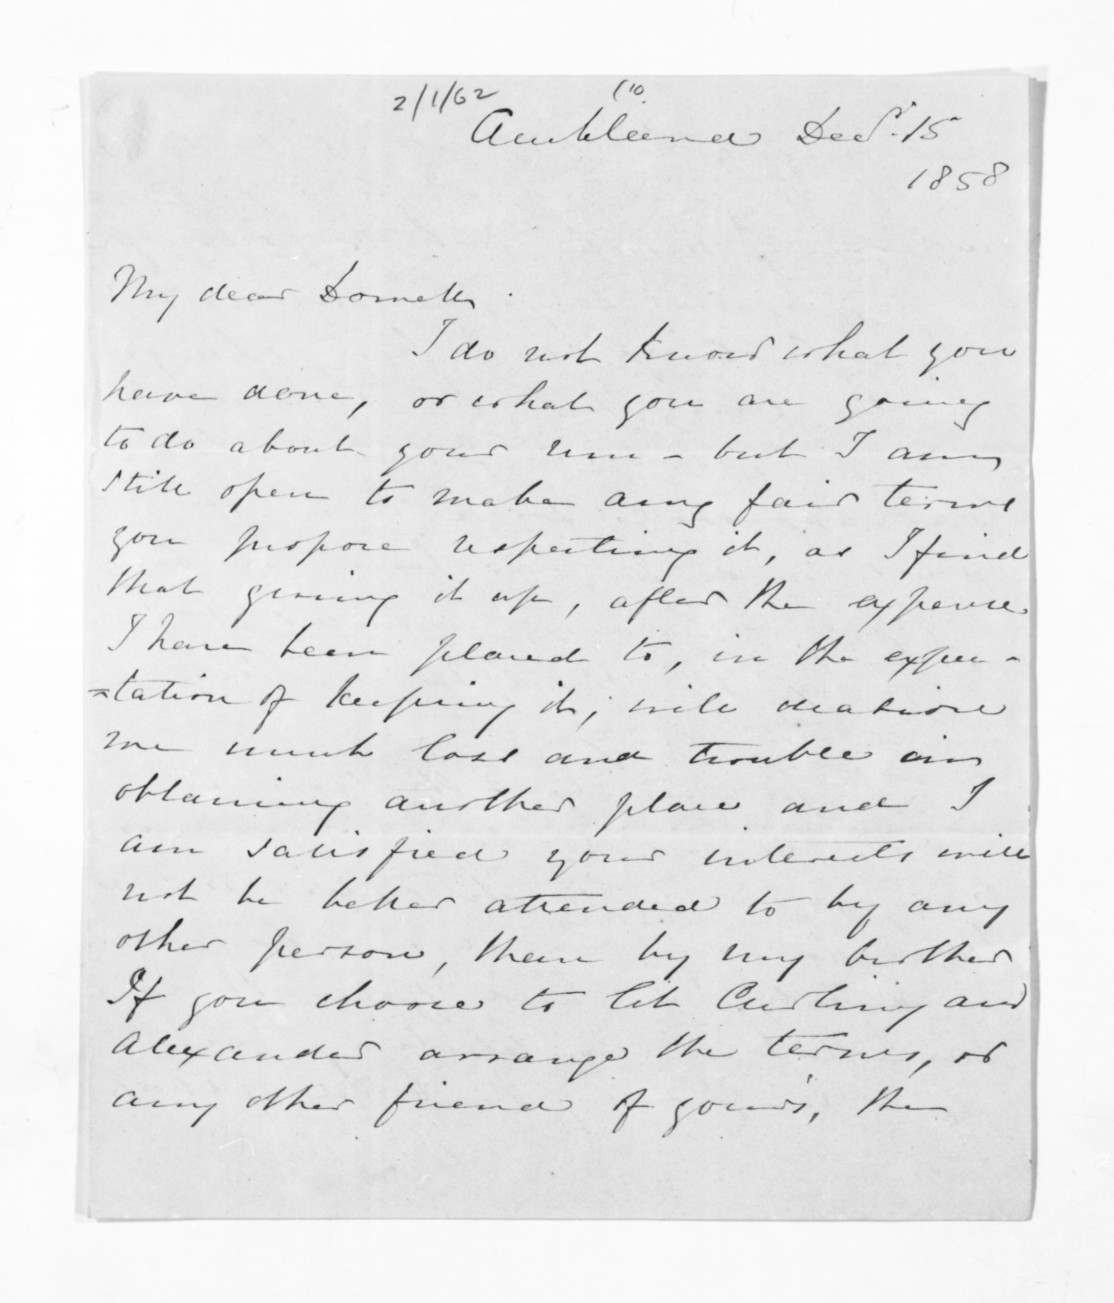 2/1/62
(10
Auckland Decr. 15
1858
My dear Domett
I do not know what you
have done, or what you are going
to do about your run - but I am
still open to make any fair terms
you propose respecting it, as I find
that giving it up, after the expense
I have been placed to, in the expec-
=tation of keeping it; will occasion
me much loss and trouble in
obtaining another place and I
am satisfied your interests will
not be better attended to by any
other person, than by my brother
If you choose to let Curling and
Alexander arrange the terms, or
any other friend of yours, the